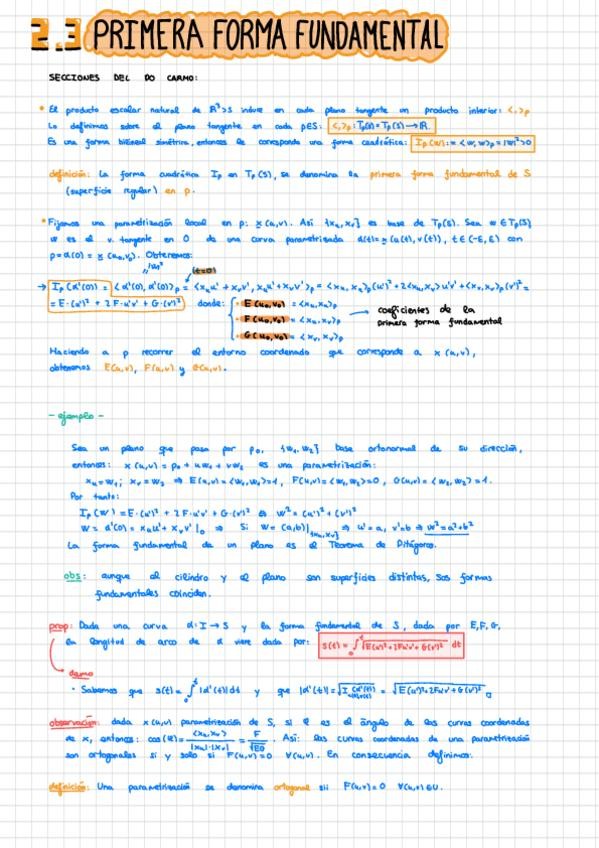 2.3 PRIMERA FORMA FUNDAMENTAL
SECCIONES DEL DO CARMO:
• El producto escalar natural de ℝ³⊃S induce en cada plano tangente un producto interior: <,>p
Lo definimos sobre el plano tangente en cada p∈S: <,>p : Tp(S) × Tp(S) → ℝ.
Es una forma bilineal simétrica, entonces le corresponde una forma cuadrática: Ip(w) := <w, w>p = |w|² > 0
definición: La forma cuadrática Ip en Tp(S), se denomina la primera forma fundamental de S
(superficie regular) en p.
• Fijamos una parametrización local en p: x(u,v). Así {xu, xv} es base de Tp(S). Sea w ∈ Tp(S)
w es el v. tangente en 0 de una curva parametrizada α(t) = x(u(t), v(t)), t∈(-ε, ε) con
p = α(0) = x(u₀, v₀). Obtenemos:
"|w|² (t=0)
→ Ip(α'(0)) = <α'(0), α'(0)>p = <xu u' + xv v', xu u' + xv v'>p = <xu, xu>p (u')² + 2<xu, xv> u'v' + <xv, xv>p (v')² =
= E·(u')² + 2F·u'v' + G·(v')² donde:
• E(u₀, v₀) = <xu, xu>p
• F(u₀, v₀) = <xu, xv>p → coeficientes de la
primera forma fundamental
• G(u₀, v₀) = <xv, xv>p
Haciendo a p recorrer el entorno coordenado que corresponde a x(u,v),
obtenemos E(u,v), F(u,v) y G(u,v).
- ejemplo -
Sea un plano que pasa por p₀, {w₁, w₂} base ortonormal de su dirección,
entonces: x(u,v) = p₀ + uw₁ + vw₂ es una parametrización:
xu = w₁; xv = w₂ ⇒ E(u,v) = <w₁, w₁> = 1, F(u,v) = <w₁, w₂> = 0, G(u,v) = <w₂, w₂> = 1.
Por tanto:
Ip(w) = E·(u')² + 2F·u'v' + G·(v')² ⇔ w² = (u')² + (v')²
w = α'(0) = xu u' + xv v' |₀ ⇒ Si w = (a,b)|{xu,xv} ⇒ u' = a, v' = b ⇒ w² = a² + b²
La forma fundamental de un plano es el Teorema de Pitágoras.
obs: aunque el cilindro y el plano son superficies distintas, sus formas
fundamentales coinciden.
prop: Dada una curva α: I → S y la forma fundamental de S, dada por E, F, G,
la longitud de arco de α viene dada por: s(t) = ∫₀ᵗ √E(u')² + 2Fu'v' + G(v')² dt
demo
• Sabemos que s(t) = ∫₀ᵗ |α'(t)| dt y que |α'(t)| = √I (α'(t)) = √E(u')² + 2Fu'v' + G(v')² □
observación: dada x(u,v) parametrización de S, si φ es el ángulo de las curvas coordenadas
de x, entonces: cos(φ) = <xu, xv> / |xu|·|xv| = F / √EG. Así: las curvas coordenadas de una parametrización
son ortogonales si y solo si F(u,v) = 0 ∀(u,v). En consecuencia definimos:
definición: Una parametrización se denomina ortogonal sii F(u,v) = 0 ∀(u,v)∈U.